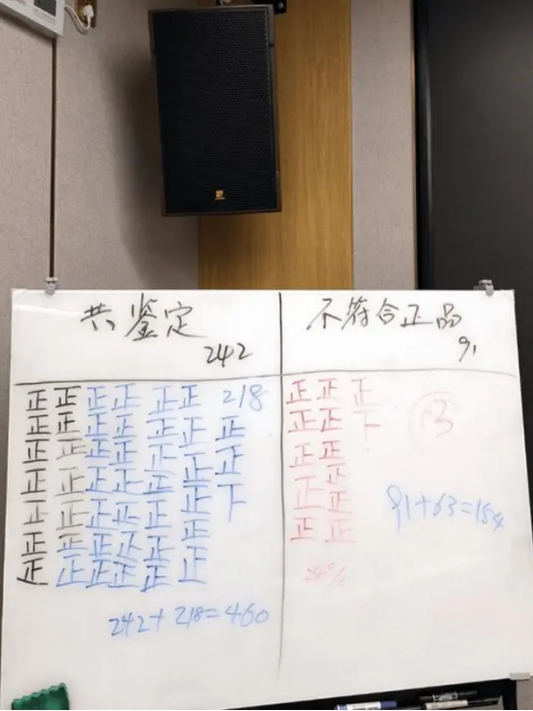 共鉴定
242
不符合正品
91
正正正正正正 218
正正正正正正正
正正正正正正正
正正正正正正下
正正正正正正
正正正正正正
正正正正正正
正正 正
正正下
正正
正正
正正
63
91+63=154
242+218=460